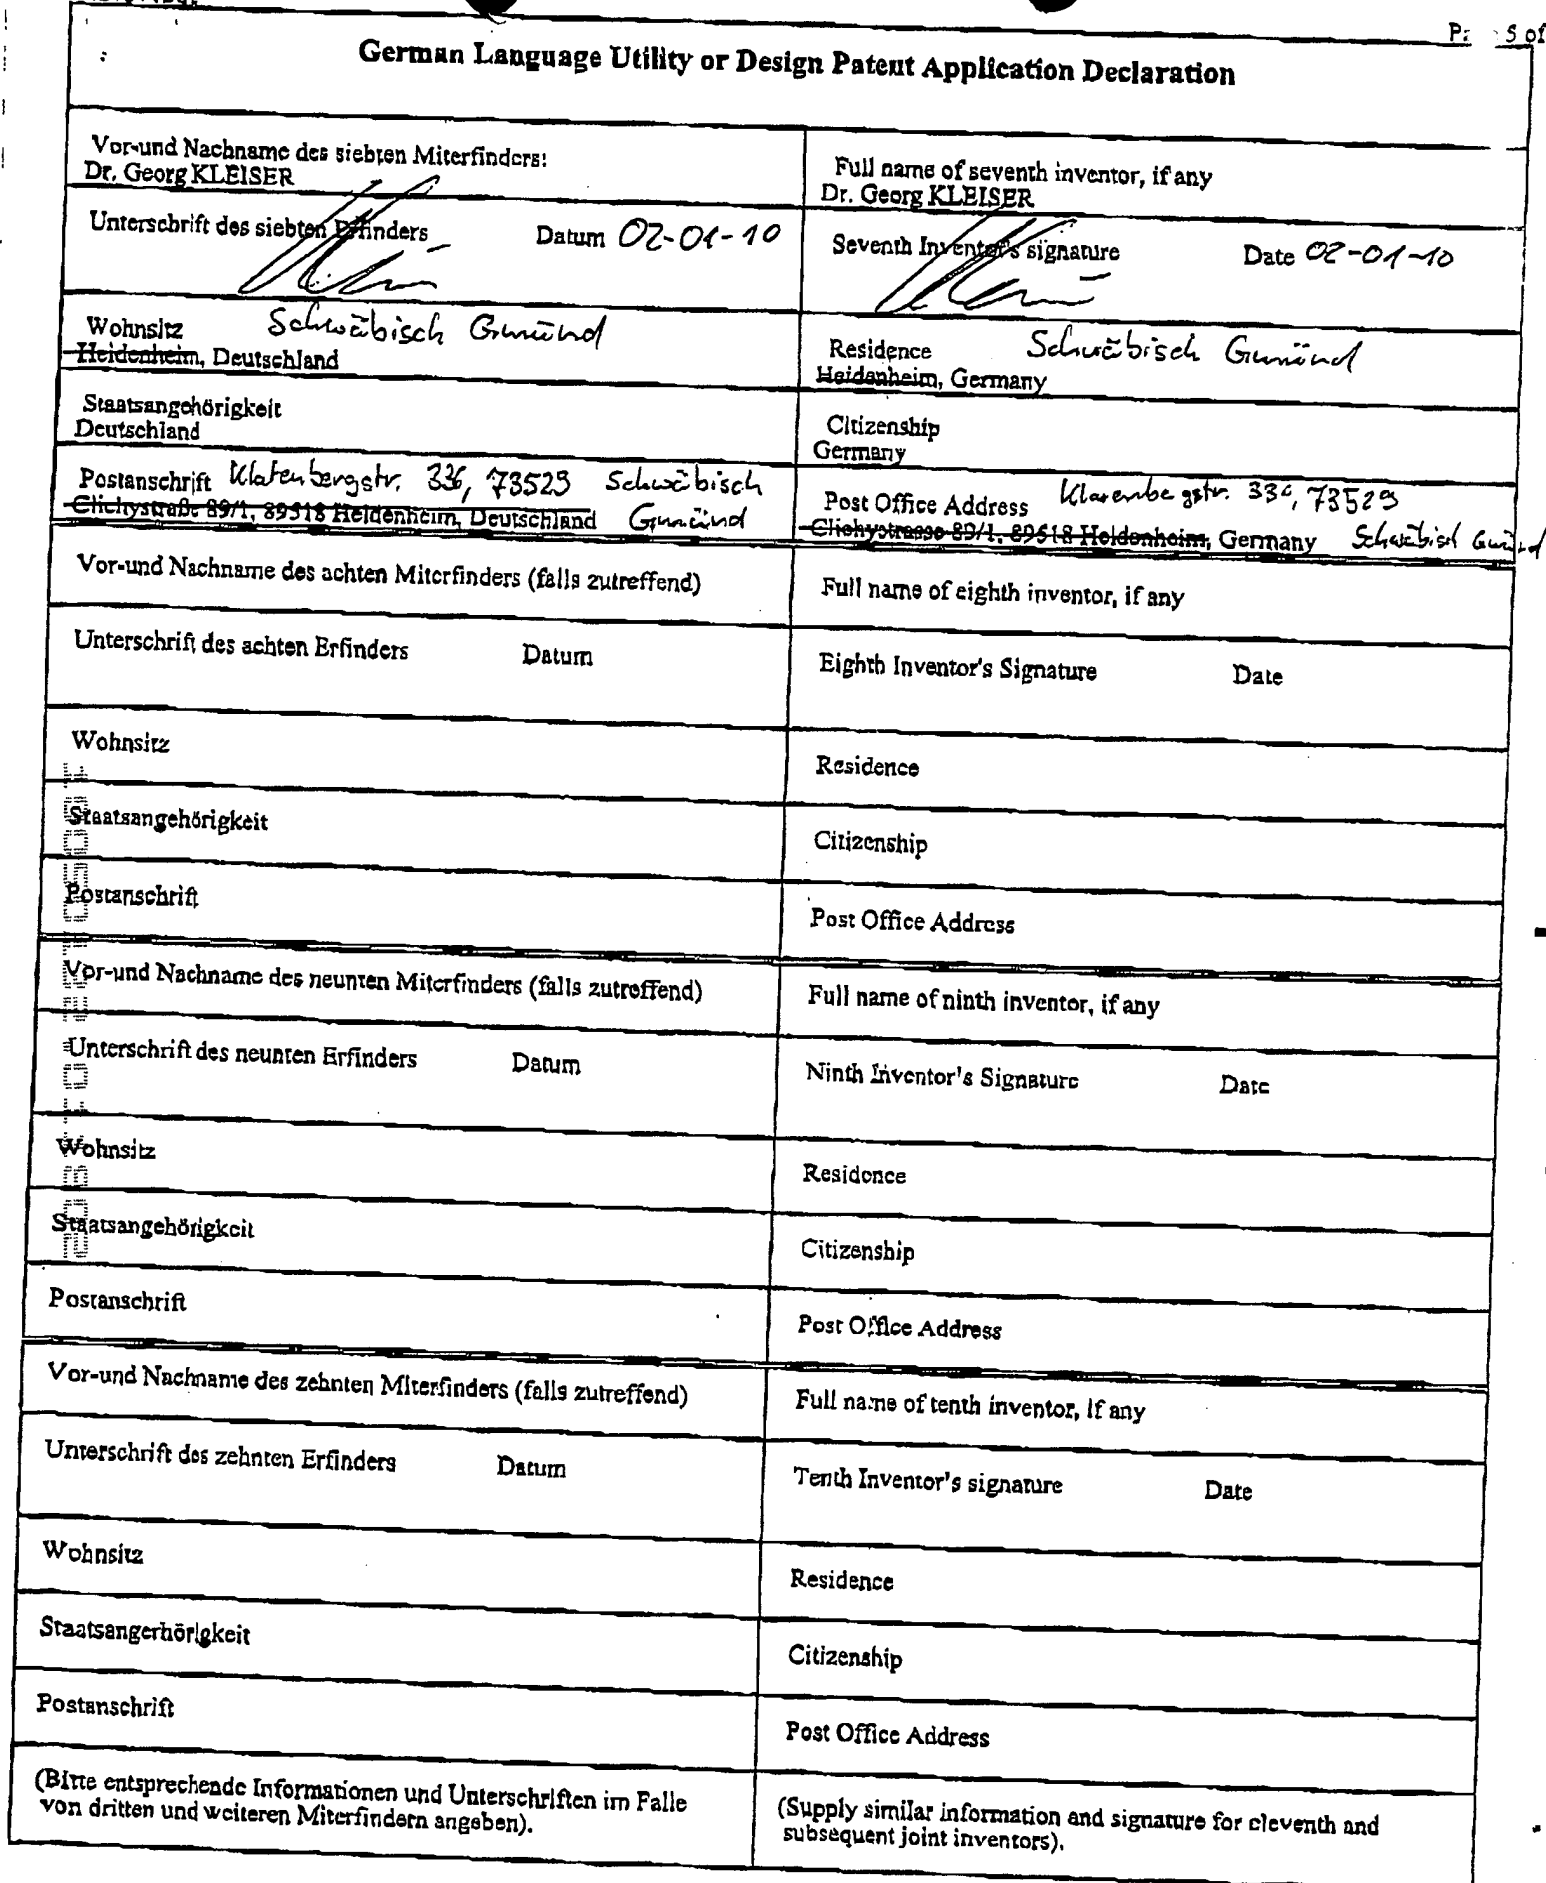 5 of
German Language Utility or Design Patent Application Declaration
Vor-und Nachname des siebten Miterfinders:
Dr. Georg KLEISER
Full name of seventh inventor, if any
Dr. Georg KLEISER
Unterschrift des siebten Erfinders Datum 02-01-10
Seventh Inventor's signature Date 02-01-10
Wohnsitz Schwäbisch Gmünd
Heidenheim, Deutschland
Residence Schwäbisch Gmünd
Heidenheim, Germany
Staatsangehörigkeit
Deutschland
Citizenship
Germany
Postanschrift 73529 Schwäbisch
Clichystraße 89/1, 89518 Heidenheim, Deutschland Gmünd
Post Office Address 73529
Clichystrasse 89/1, 89518 Heidenheim, Germany Schwäbisch Gmünd
Vor-und Nachname des achten Miterfinders (falls zutreffend)
Full name of eighth inventor, if any
Unterschrift des achten Erfinders Datum
Eighth Inventor's Signature Date
Wohnsitz
Residence
Staatsangehörigkeit
Citizenship
Postanschrift
Post Office Address
Vor-und Nachname des neunten Miterfinders (falls zutreffend)
Full name of ninth inventor, if any
Unterschrift des neunten Erfinders Datum
Ninth Inventor's Signature Date
Wohnsitz
Residence
Staatsangehörigkeit
Citizenship
Postanschrift
Post Office Address
Vor-und Nachname des zehnten Miterfinders (falls zutreffend)
Full name of tenth inventor, if any
Unterschrift des zehnten Erfinders Datum
Tenth Inventor's signature Date
Wohnsitz
Residence
Staatsangerhörigkeit
Citizenship
Postanschrift
Post Office Address
(Bitte entsprechende Informationen und Unterschriften im Falle
von dritten und weiteren Miterfindern angeben).
(Supply similar information and signature for eleventh and
subsequent joint inventors).